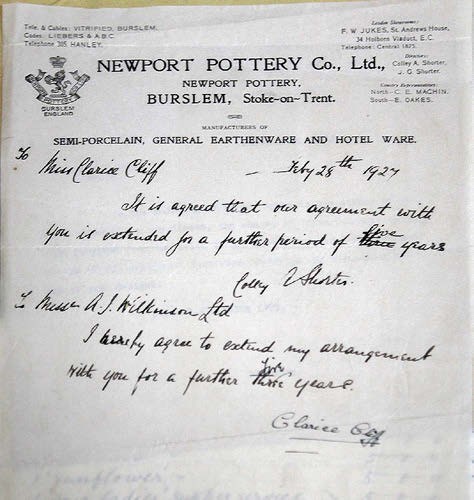 Tele. & Cables: VITRIFIED, BURSLEM.
Codes: LIEBERS & A B C
Telephone 305 HANLEY.
London Showrooms:
F. W JUKES, St. Andrews House,
34 Holborn Viaduct, E.C.
Telephone: Central 1875.
Directors:
Colley A. Shorter,
J. G. Shorter.
Country Representatives:
North—C. E. MACHIN.
South—E. OAKES.
BURSLEM
ENGLAND
NEWPORT POTTERY Co., Ltd.,
NEWPORT POTTERY,
BURSLEM, Stoke-on-Trent.
MANUFACTURERS OF
SEMI-PORCELAIN, GENERAL EARTHENWARE AND HOTEL WARE.
To
Miss Clarice Cliff — Feby 28th 1927
It is agreed that our agreement with
you is extended for a further period of five three years
Colley A Shorter.
To Messrs A. J. Wilkinson Ltd
I hereby agree to extend my arrangement
with you for a further five three years.
Clarice Cliff